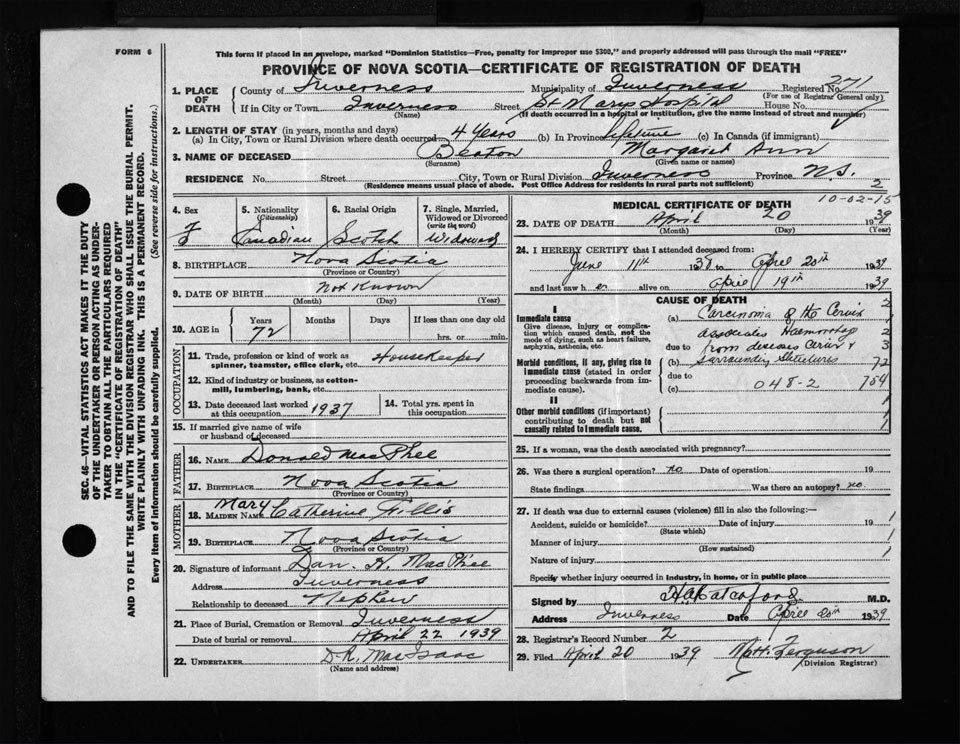 FORM 6
This form if placed in an envelope, marked "Dominion Statistics—Free, penalty for improper use $300," and properly addressed will pass through the mail "FREE"
PROVINCE OF NOVA SCOTIA—CERTIFICATE OF REGISTRATION OF DEATH
1. PLACE OF DEATH County of Inverness Municipality of Inverness Registered No. 271
(For use of Registrar General only)
If in City or Town Inverness Street St Marys Hospital House No.
(Name) (If death occurred in a hospital or institution, give the name instead of street and number)
2. LENGTH OF STAY (in years, months and days)
(a) In City, Town or Rural Division where death occurred 4 Years (b) In Province lifetime (c) In Canada (if immigrant)
3. NAME OF DECEASED Beaton Margaret Ann
(Surname) (Given name or names)
RESIDENCE No. Street City, Town or Rural Division Inverness Province N.S.
(Residence means usual place of abode. Post Office Address for residents in rural parts not sufficient) 2
4. Sex F
5. Nationality (Citizenship) Canadian
6. Racial Origin Scotch
7. Single, Married, Widowed or Divorced (write the word) Widowed
8. BIRTHPLACE Nova Scotia
(Province or Country)
9. DATE OF BIRTH Not Known
(Month) (Day) (Year)
10. AGE in Years Months Days If less than one day old
72 hrs. or min.
OCCUPATION
11. Trade, profession or kind of work as spinner, teamster, office clerk, etc. Housekeeper
12. Kind of industry or business, as cotton-mill, lumbering, bank, etc.
13. Date deceased last worked at this occupation 1937
14. Total yrs. spent in this occupation
15. If married give name of wife or husband of deceased
FATHER
16. NAME Donald MacPhee
17. BIRTHPLACE Nova Scotia
(Province or Country)
MOTHER
18. MAIDEN NAME Mary Catherine Gillis
19. BIRTHPLACE Nova Scotia
(Province or Country)
20. Signature of informant Dan. H. MacPhee
Address Inverness
Relationship to deceased Nephew
21. Place of Burial, Cremation or Removal Inverness
Date of burial or removal April 22 1939
22. UNDERTAKER D.R. MacIsaac
(Name and address)
MEDICAL CERTIFICATE OF DEATH
10-02-15
23. DATE OF DEATH April 20 1939
(Month) (Day) (Year)
24. I HEREBY CERTIFY that I attended deceased from:
June 11th 1938 to April 20th 1939
and last saw h er alive on April 19th 1939
CAUSE OF DEATH
I
Immediate cause
Give disease, injury or complication which caused death, not the mode of dying, such as heart failure, asphyxia, asthenia, etc.
(a) Carcinoma of the Cervix 2
associated Haemorrhage 2
due to from diseased Cervix & 3
Morbid conditions, if any, giving rise to immediate cause (stated in order proceeding backwards from immediate cause).
(b) Surrounding Structures 72
due to
(c) 048-2 754
II
Other morbid conditions (if important) contributing to death but not causally related to immediate cause.
1
1
1
25. If a woman, was the death associated with pregnancy?
26. Was there a surgical operation? no Date of operation 19
State findings Was there an autopsy? no.
27. If death was due to external causes (violence) fill in also the following:—
Accident, suicide or homicide? Date of injury 19 1
(State which)
Manner of injury 1
(How sustained)
Nature of injury 1
Specify whether injury occurred in industry, in home, or in public place
Signed by M.D.
Address Inverness Date April 20th 1939
28. Registrar's Record Number 2
29. Filed April 20 1939 Ferguson
(Division Registrar)
SEC. 46—VITAL STATISTICS ACT MAKES IT THE DUTY
OF THE UNDERTAKER OR PERSON ACTING AS UNDER-
TAKER TO OBTAIN ALL THE PARTICULARS REQUIRED
IN THE "CERTIFICATE OF REGISTRATION OF DEATH"
AND TO FILE THE SAME WITH THE DIVISION REGISTRAR WHO SHALL ISSUE THE BURIAL PERMIT.
WRITE PLAINLY WITH UNFADING INK. THIS IS A PERMANENT RECORD.
Every item of information should be carefully supplied. (See reverse side for instructions.)